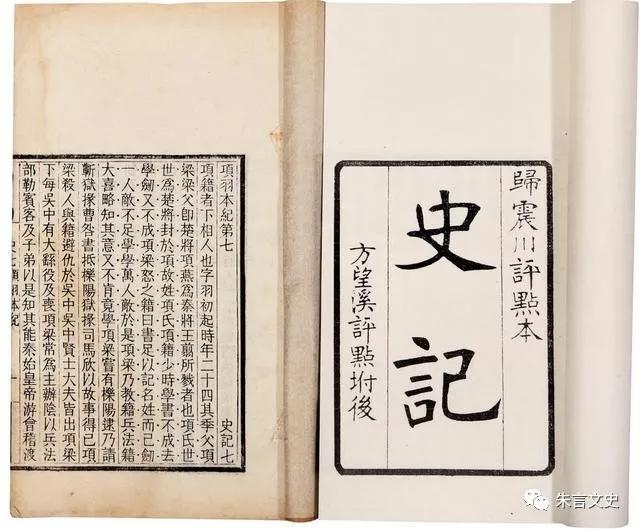 歸震川評點本
史記
方望溪評點坿後
項羽本紀第七 史記七
項籍者下相人也字羽初起時年二十四其季父項
梁梁父卽楚將項燕爲秦將王翦所戮者也項氏世
世爲楚將封於項故姓項氏項籍少時學書不成去
學劍又不成項梁怒之籍曰書足以記名姓而已劍
一人敵不足學學萬人敵於是項梁乃敎籍兵法籍
大喜略知其意又不肯竟學項梁嘗有櫟陽逮乃請
蘄獄掾曹咎書抵櫟陽獄掾司馬欣以故事得已項
梁殺人與籍避仇於吳中吳中賢士大夫皆出項梁
下每吳中有大繇役及喪項梁常爲主辦陰以兵法
部勒賓客及子弟以是知其能秦始皇帝游會稽渡
項羽本紀
朱言文史